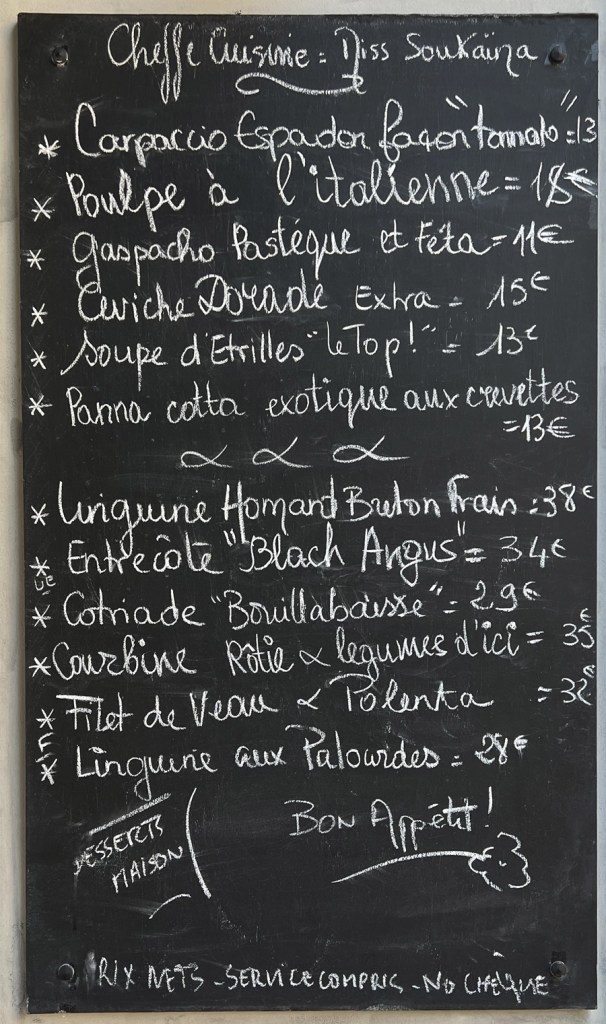 Cheffe Cuisine = Miss Soukaïna
* Carpaccio Espadon façon "tonnato" = 13
* Poulpe à l'italienne = 18€
* Gaspacho Pastèque et Féta = 11€
* Ceviche Dorade Extra - 15€
* Soupe d'Etrilles "le Top!" = 13€
* Panna cotta exotique aux crevettes
= 13€
* Linguine Homard Breton Frais = 38€
* Entrecôte "Black Angus" = 34€
UE
* Cotriade "Bouillabaisse" = 29€
* Courbine Rôtie & légumes d'ici = 35€
* Filet de Veau & Polenta = 32€
* Linguine aux Palourdes = 28€
DESSERTS
MAISON
Bon Appétit!
RIX NETS - SERVICE COMPRIS - NO CHÈQUE